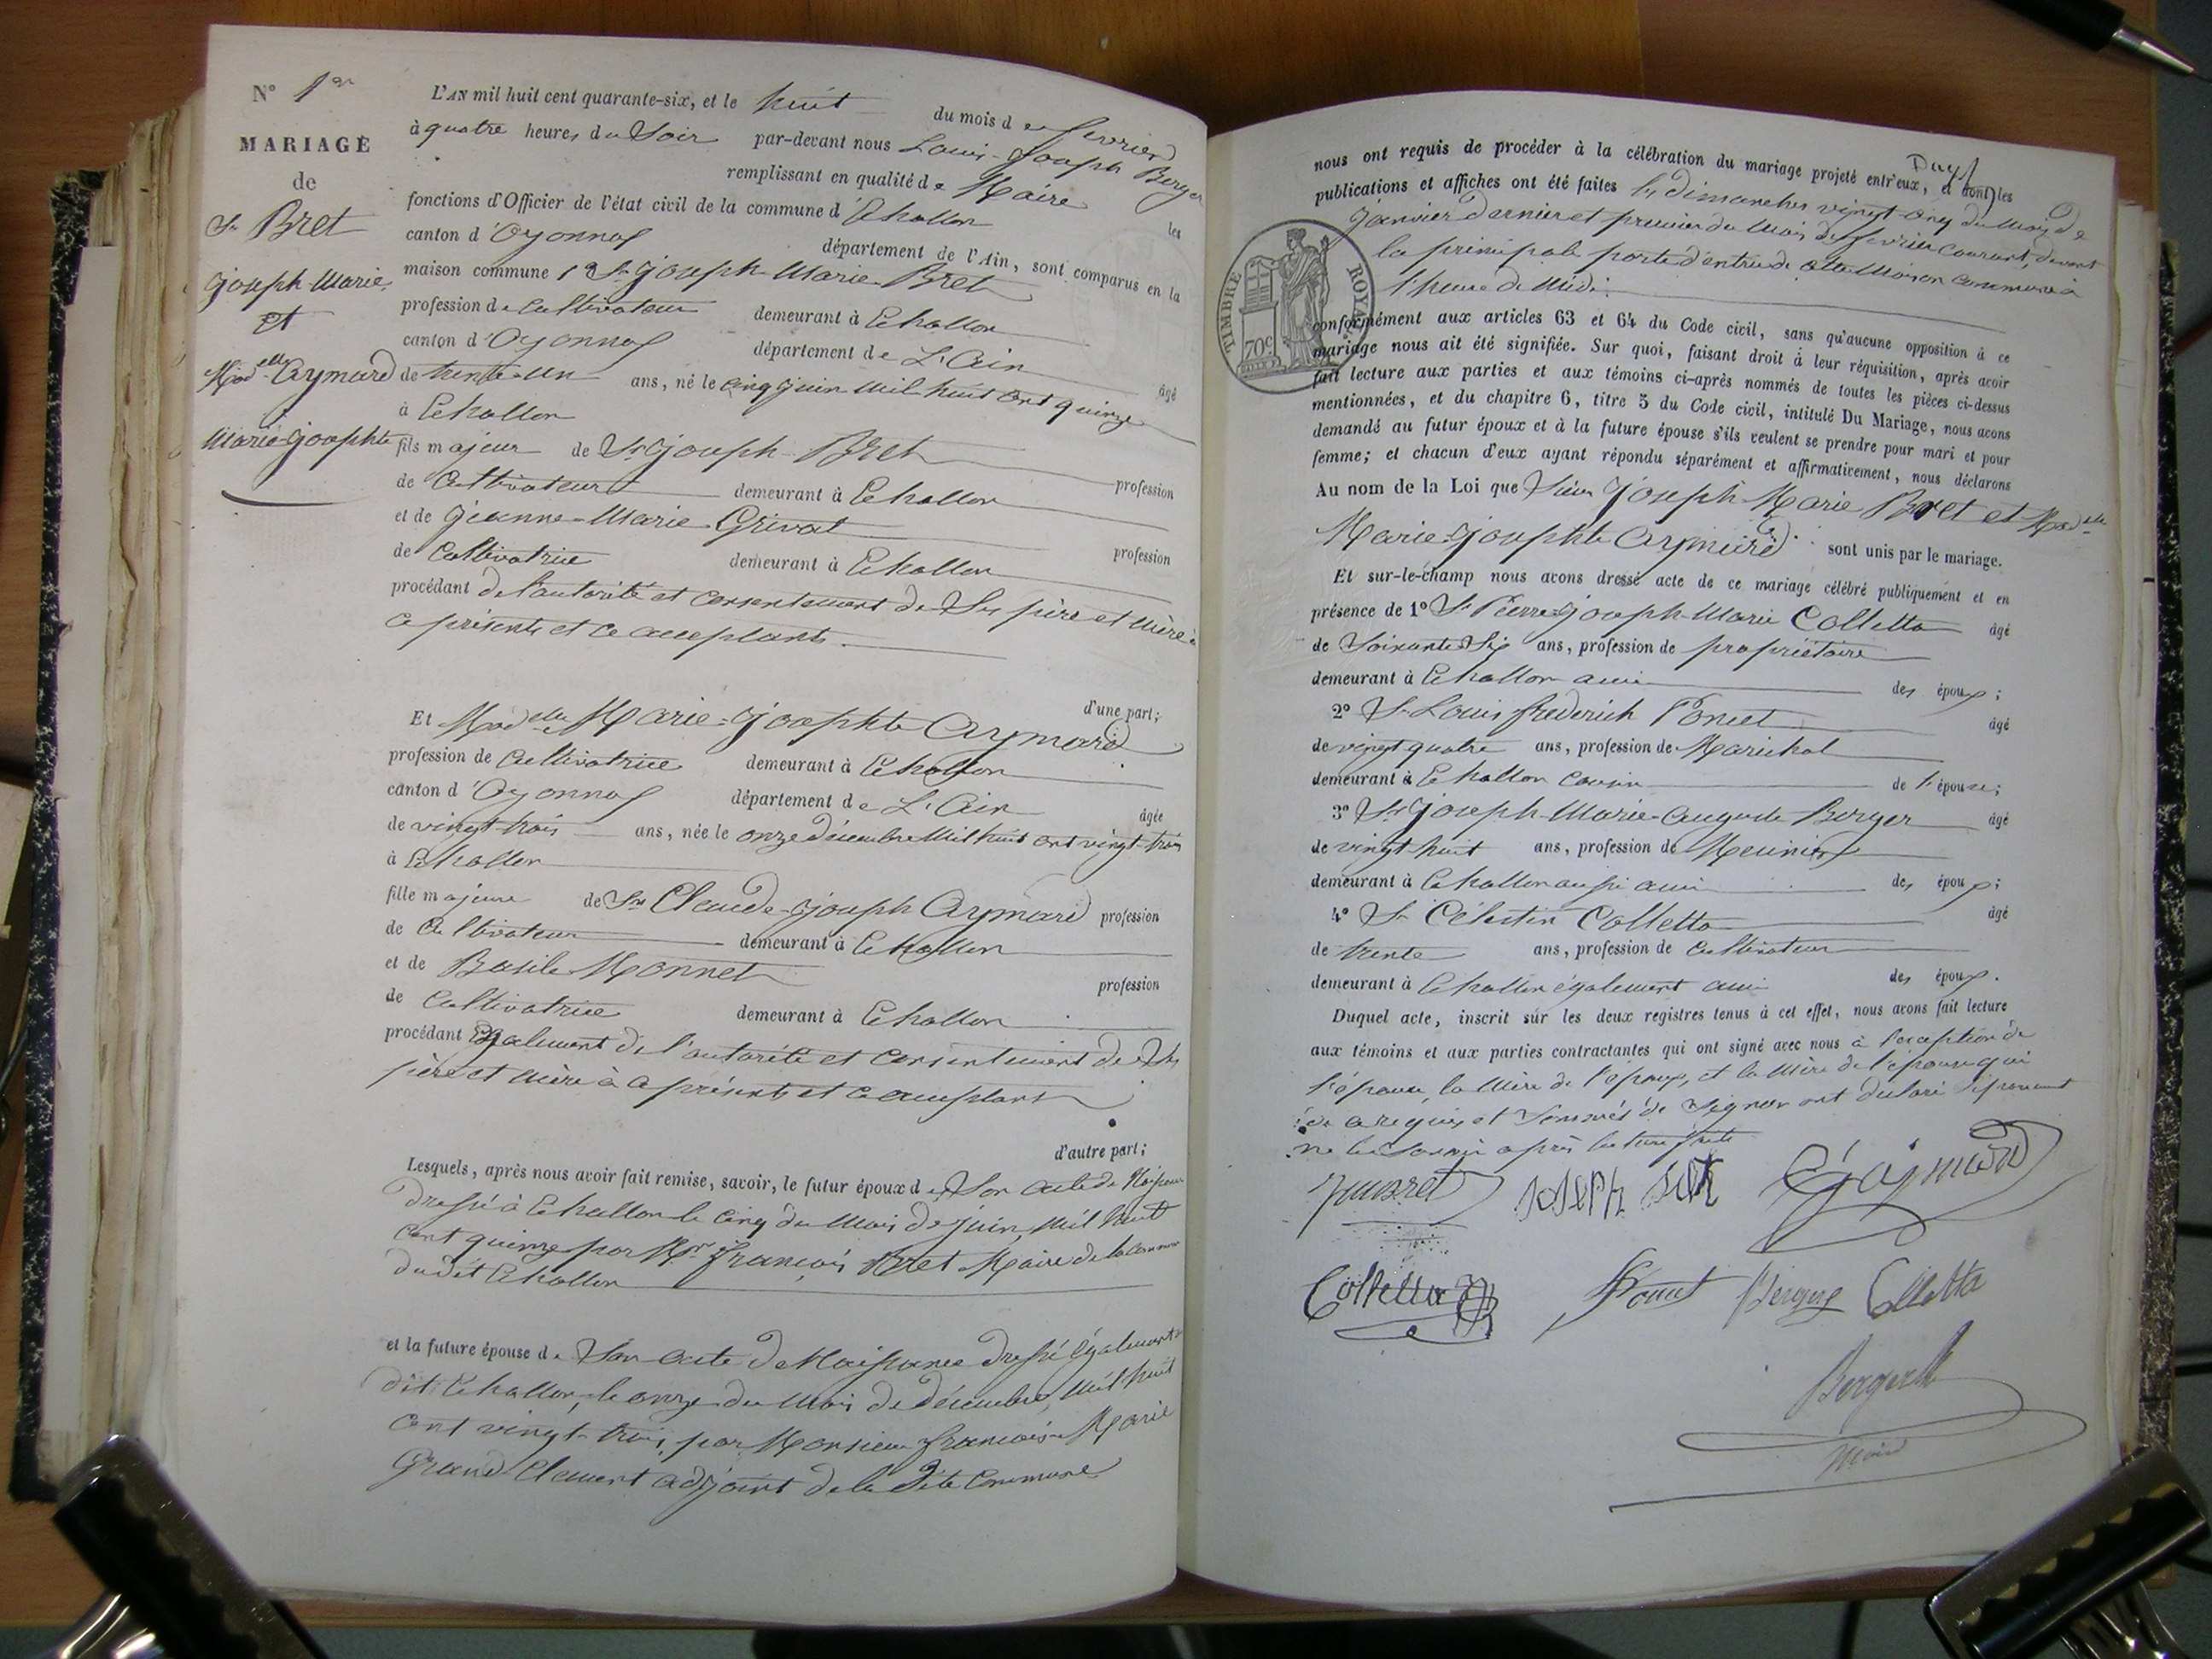 N° 1er
MARIAGE
de
Sr Bret
Joseph-Marie
et
Madelle Aymard
Marie-Josephte
L'AN mil huit cent quarante-six, et le huit du mois de fevrier
à quatre heures du Soir par-devant nous Louis-Joseph Berger
remplissant en qualité de Maire les
fonctions d'Officier de l'état civil de la commune d'Echallon
canton d'Oyonnax département de l'Ain, sont comparus en la
maison commune 1° Sr Joseph-Marie Bret
profession de Cultivateur demeurant à Echallon
canton d'Oyonnax département de L'Ain âgé
de trente-un ans, né le cinq juin mil huit cent quinze
à Echallon
fils majeur de Sr Joseph Bret profession
de Cultivateur demeurant à Echallon
et de Jeanne-Marie Grivat profession
de Cultivatrice demeurant à Echallon
procédant de l'autorité et consentement de Ses père et mère à
ce présents et ce acceptants.
d'une part;
Et Madelle Marie-Josephte Aymard
profession de Cultivatrice demeurant à Echallon
canton d'Oyonnax département de L'Ain âgée
de vingt trois ans, née le onze décembre Mil huit cent vingt-trois
à Echallon
fille majeure de Sr Claude-Joseph Aymard profession
de Cultivateur demeurant à Echallon
et de Basile Monnet profession
de Cultivatrice demeurant à Echallon
procédant Egalement de l'autorité et consentement de Ses
père et mère à ce présents et ce acceptant
d'autre part;
Lesquels, après nous avoir fait remise, savoir, le futur époux de Son acte de Naissance
dressé à Echallon le cinq du mois de juin, mil huit
cent quinze par Mr François Bret Maire de la Commune
dudit Echallon
et la future épouse de Son acte de Naissance dressé également
dit Echallon, le onze du mois de décembre, mil huit
cent vingt-trois, par Monsieur François-Marie
Grand-Clement adjoint de la dite Commune
nous ont requis de procéder à la célébration du mariage projeté entr'eux, et dont les
publications et affiches ont été faites les dimanches vingt-cinq du mois de
Janvier dernier et premier du mois de fevrier courant, devant
la principale porte d'entrée de cette Maison commune à
l'heure de Midi.
TIMBRE ROYAL
70c
conformément aux articles 63 et 64 du Code civil, sans qu'aucune opposition à ce
mariage nous ait été signifiée. Sur quoi, faisant droit à leur réquisition, après avoir
fait lecture aux parties et aux témoins ci-après nommés de toutes les pièces ci-dessus
mentionnées, et du chapitre 6, titre 5 du Code civil, intitulé Du Mariage, nous avons
demandé au futur époux et à la future épouse s'ils veulent se prendre pour mari et pour
femme; et chacun d'eux ayant répondu séparément et affirmativement, nous déclarons
Au nom de la Loi que Sieur Joseph-Marie Bret et Madelle
Marie-Josephte Aymard sont unis par le mariage.
Et sur-le-champ nous avons dressé acte de ce mariage célébré publiquement et en
présence de 1° Sr Pierre-Joseph-Marie Colletta âgé
de Soixante Six ans, profession de propriétaire
demeurant à Echallon ami des époux;
2° Sr Louis frederich Poncet âgé
de vingt quatre ans, profession de Maréchal
demeurant à Echallon cousin de l'épouse;
3° Sr Joseph-Marie-Auguste Berger âgé
de vingt-huit ans, profession de Meunier
demeurant à Echallon aussi ami des époux;
4° Sr Célestin Colletta âgé
de trente ans, profession de Cultivateur
demeurant à Echallon également ami des époux.
Duquel acte, inscrit sur les deux registres tenus à cet effet, nous avons fait lecture
aux témoins et aux parties contractantes qui ont signé avec nous à l'exception de
l'épouse, la mère de l'époux, et la mère de l'épouse qui
de ce requis et Sommés de Signer ont déclaré séparément
ne le Savoir après lecture faite
Joseph Bret
C J Aymard
Colletta
Poncet Berger Colletta
Berger
Maire